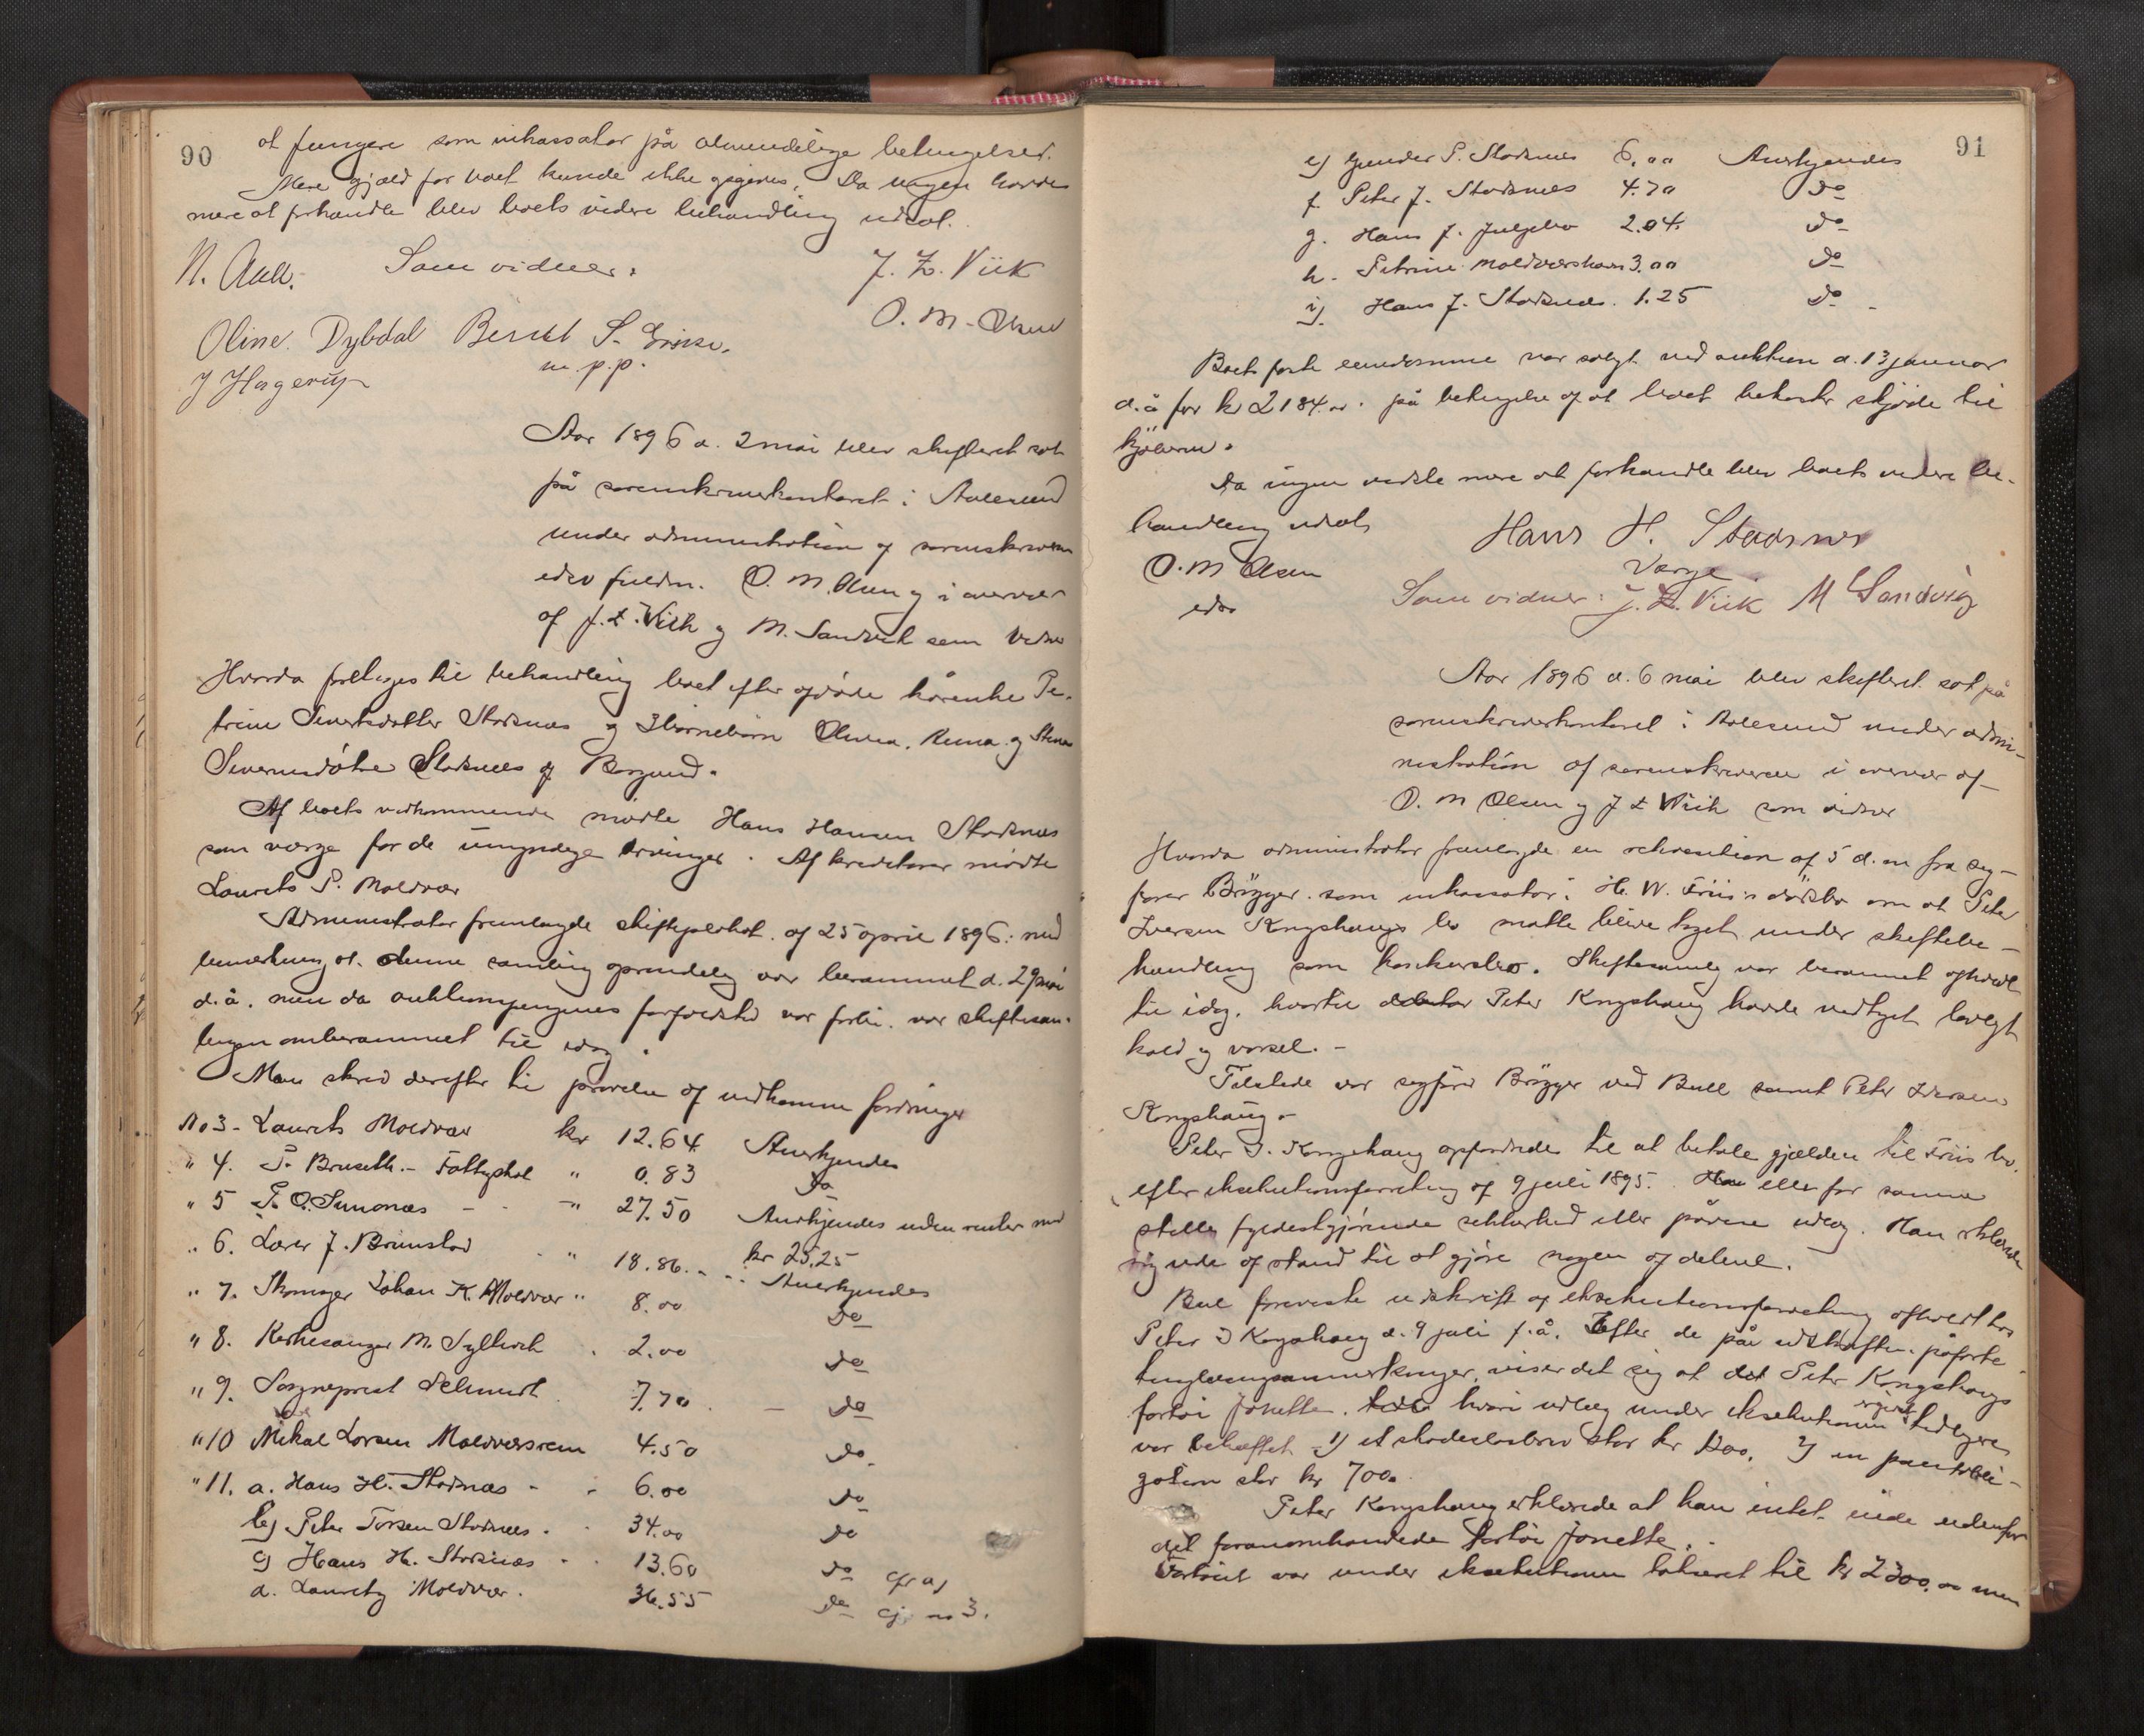 90
at fungere som inkassator på almindelige betingelser.
Mere gjæld for boet kunde ikke opgives. Da ingen havde
mere at forhandle blev boets videre behandling udsat.
N. Aall. Som vidner: J. Z. Viik
O. M. Olsen
Oline Dybdal Berndt S.
m. p. p.
J Hagerup
Aar 1896 d. 2 mai blev skifteret sat
på sorenskriverkontoret i Aalesund
under administration af sorenskriveren
edsv fuldm. O. M. Olsen og i overvær
af J. Z. Viik og M. Sandvik som vidner
Hvorda foretoges til behandling boet efter afdøde kårenke Pe-
trine Sivertsdatter Stadsnæs og Olivia, Anna og
Stadsnæs af Borgund.
Af boets vedkommende mødte Hans Hansen Stadsnæs
som værge for de umyndige arvinger. Af kreditorer mødte
Laurits P. Moldvær
Administrator fremlagde skifteplakat af 25 april 1896 med
bemærkning at denne samling oprindelig var berammet d. 29 mai
d. å. men da auktionspengenes forfaldstid var forbi var skiftesam-
lingen omberammet til idag.
Man skred derefter til prøvelse af indkomne fordringer
No 3 - Laurits Moldvær kr 12.64 Anerkjendes
" 4. P. Bruseth - Fattigskat " 0.83 do
" 5 P. O. Simonæs - " 27.50 Anerkjendes uden renter med
kr 25.25
" 6. Lærer J. Brunstad " 18.86 - Anerkjendes
" 7. Skomager Johan K. Moldvær " 8.00 do
" 8. Kirkesanger M. Sylterik 2.00 do
" 9. Sogneprest Schmidt 7.70 - do
" 10 Mikal Larsen Moldværsrem 4.50 do
" 11. a. Hans H. Stadsnæs - 6.00 do
b) Peter Stadsnæs 34.00 do
c) Hans H. Stadsnæs 13.60 do cfr a)
d. Laurits Moldvær. 36.55 do cfr no 3.
91
e) Gunder P. Stadsnæs 6.00 Anerkjendes
f. Peter J. Stadsnæs 4.70 do
g. Hans J. 2.04 do
h. Petrine Moldværshavn 3.00 do
i) Hans J. Stadsnæs. 1.25 do -
Boets faste eiendomme var solgt ved auktion d. 13 januar
d. å for kr 2184.00 på betingelse af at boet bekoster skjøde til
kjøberen.
Da ingen vidste mere at forhandle blev boets videre be-
handling udsat
Hans H. Stadsnæs
O. M Olsen Værge
edsv Som vidner: J. Z. Viik M Sandvig
Aar 1896 d. 6 mai blev skifteret sat på
sorenskriverkontoret i Aalesund under admi-
nistration af sorenskriveren i overvær af
O. M Olsen og J Z Viik som vidner
Hvorda administrator fremlagde en rekvisition af 5 d. m fra sag-
fører Brygger som inkassator i H. W. Friis's dødsbo om at Peter
Iversen Kongshaugs bo måtte blive taget under skiftebe-
handling som konkursbo. Skiftesamling var berammet afholdt
til idag, hvortil debitor Peter Kongshaug havde vedtaget lovligt
kald og varsel. -
Tilstede var sagfører Brygger ved Bull samt Peter Iversen
Kongshaug -
Peter I. Kongshaug opfordredes til at betale gjælden til Friis bo
efter eksekutionsforretning af 9 juli 1895. eller for samme
stille fyldestgjørende sikkerhed eller påvise udlæg. Han erklærede
sig ude af stand til at gjøre nogen af delene.
Bull foreviste udskrift af eksekutionsforretning afholdt hos
Peter I Kongshaug d. 9 juli f. å. Efter de på udskriften påførte
tinglæsningsanmerkninger, viser det sig at det Peter Kongshaugs
fartøi Jonette, hvori udlæg under eksekutionen tidligere
var behæftet 1) et skadesløsbrev stor kr 1200, 2) en pantobli-
gation stor kr 700.
Peter Kongshaug erklærede at han intet eiede udenfor
det foranomhandlede fartøi Jonette.
Fartøiet var under eksekutionen takseret til kr 2300.00 men